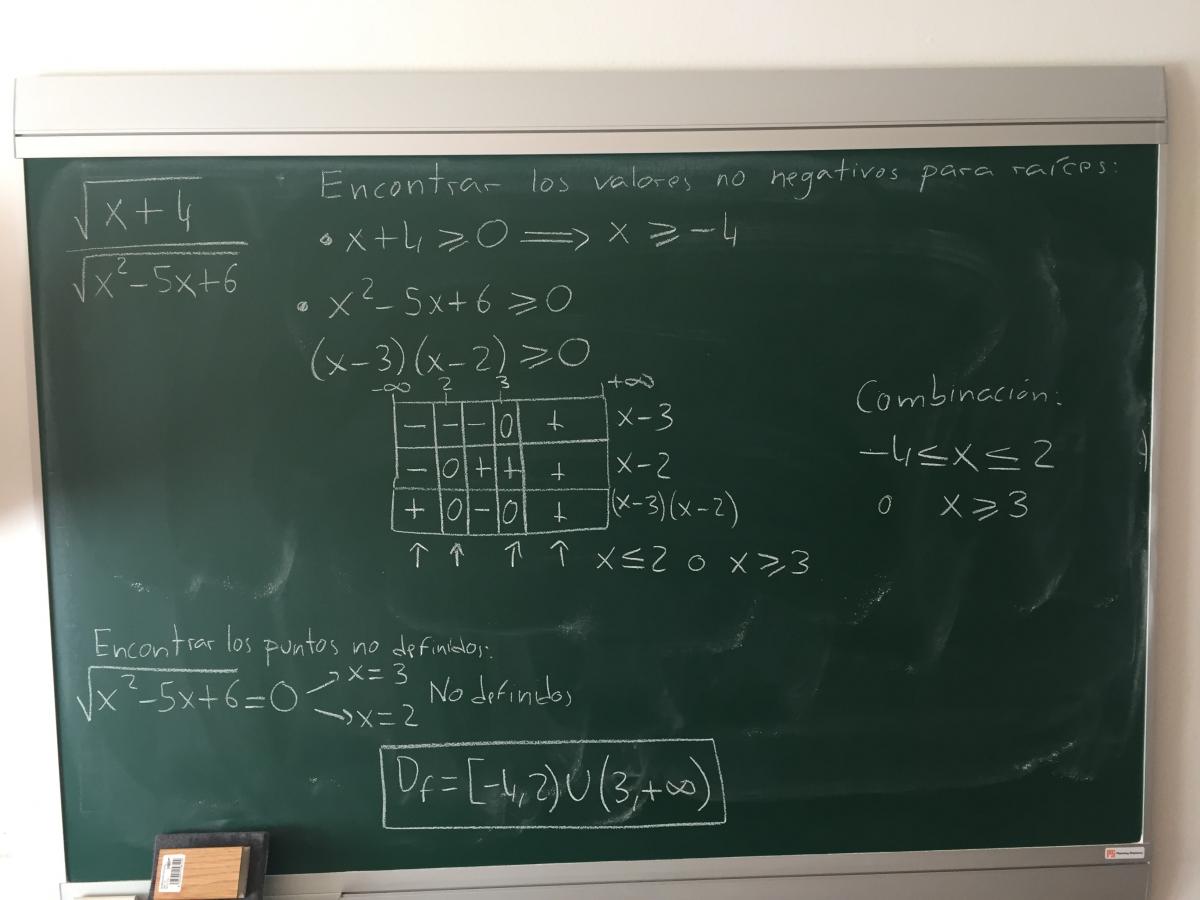 √(x+4)
√(x²-5x+6)
Encontrar los valores no negativos para raíces:
• x+4 ⩾ 0 ⟹ x ⩾ -4
• x²-5x+6 ⩾ 0
(x-3)(x-2) ⩾ 0
-∞ 2 3 +∞
- - - 0 + x-3
- 0 + + + x-2
+ 0 - 0 + (x-3)(x-2)
↑ ↑ ↑ ↑ x ≤ 2 o x ⩾ 3
Combinación:
-4 ≤ x ≤ 2
o x ⩾ 3
Encontrar los puntos no definidos:
√(x²-5x+6) = 0 → x=3
→ x=2
No definidos
Df = [-4, 2) ∪ (3, +∞)